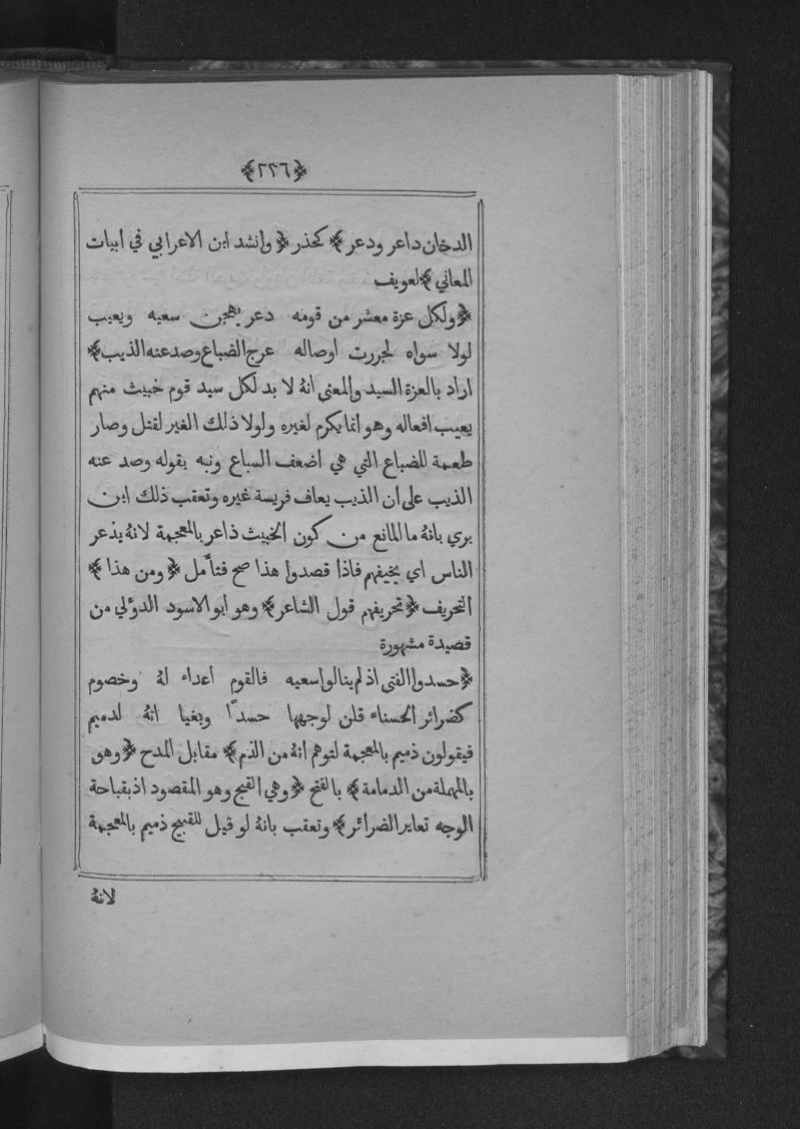 ﴿٢٢٦﴾
الدخان داعر ودعر﴾ كحذر ﴿وانشد ابن الاعرابي في ابيات
المعاني﴾ لعويف
﴿ولكل عزة معشر من قومه دعر يهجن سعيه ويعيب
لولا سواه لجررت اوصاله عرج الضباع وصد عنه الذيب﴾
اراد بالعزة السيد والمعنى انهُ لا بد لكل سيد قوم خبيث منهم
يعيب افعاله وهو انما يكرم لغيره ولولا ذلك الغير لقتل وصار
طعمة للضباع التي هي اضعف السباع ونبه بقوله وصد عنه
الذيب على ان الذيب يعاف فريسة غيره وتعقب ذلك ابن
بري بانهُ ما المانع من كون الخبيث ذاعر بالمعجمة لانهُ يذعر
الناس اي يخيفهم فاذا قصدوا هذا صح فتأمل ﴿ومن هذا﴾
التحريف ﴿تحريفهم قول الشاعر﴾ وهو ابو الاسود الدؤلي من
قصيدة مشهورة
﴿حسدوا الفتى اذ لم ينالوا سعيه فالقوم اعداء لهُ وخصوم
كضرائر الحسناء قلن لوجهها حسدًا وبغيا انهُ لدميم
فيقولون ذميم بالمعجمة لتوهم انهُ من الذم﴾ مقابل المدح ﴿وهو
بالمهملة من الدمامة﴾ بالفتح ﴿وهي القبح وهو المقصود اذ بقباحة
الوجه تعاير الضرائر﴾ وتعقب بانهُ لو قيل للقبيح ذميم بالمعجمة
لانهُ